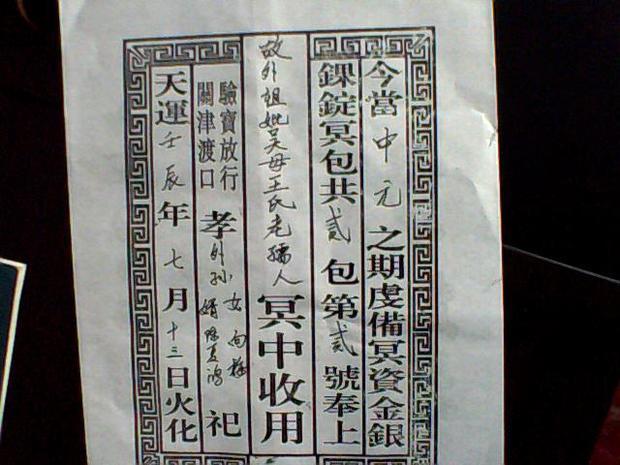 今當中元之期虔備冥資金銀
錁錠冥包共貳包第貳號奉上
故外祖妣吴母王氏老孺人冥中收用
驗寶放行
關津渡口
孝外孫女向
婿
祀
天運壬辰年七月十三日火化